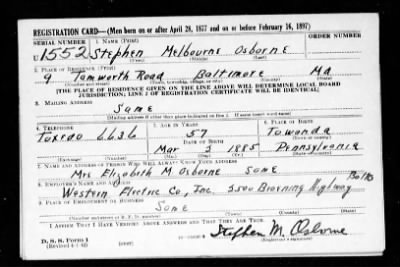 REGISTRATION CARD—(Men born on or after April 28, 1877 and on or before February 16, 1897)
SERIAL NUMBER 1. NAME (Print) ORDER NUMBER
U 1552 Stephen Melbourne Osborne
(First) (Middle) (Last)
2. PLACE OF RESIDENCE (Print)
9 Tamworth Road Baltimore Md
(Number and street) (Town, township, village, or city) (County) (State)
[THE PLACE OF RESIDENCE GIVEN ON THE LINE ABOVE WILL DETERMINE LOCAL BOARD
JURISDICTION; LINE 2 OF REGISTRATION CERTIFICATE WILL BE IDENTICAL]
3. MAILING ADDRESS
Same
[Mailing address if other than place indicated on line 2. If same insert word same]
4. TELEPHONE 5. AGE IN YEARS 6. PLACE OF BIRTH
Tuxedo 6636 57 Towanda
DATE OF BIRTH (Town or county)
Mar 3 1885 Pennsylvania
(Exchange) (Number) (Mo.) (Day) (Yr.) (State or country)
7. NAME AND ADDRESS OF PERSON WHO WILL ALWAYS KNOW YOUR ADDRESS
Mrs Elizabeth M Osborne Same
8. EMPLOYER'S NAME AND ADDRESS
Western Electric Co, Inc. 2500 Broening Highway Balto
9. PLACE OF EMPLOYMENT OR BUSINESS
Same
(Number and street or R. F. D. number) (Town) (County) (State)
I AFFIRM THAT I HAVE VERIFIED ABOVE ANSWERS AND THAT THEY ARE TRUE.
D. S. S. Form 1
(Revised 4-1-42) (over) Stephen M. Osborne
(Registrant's signature)